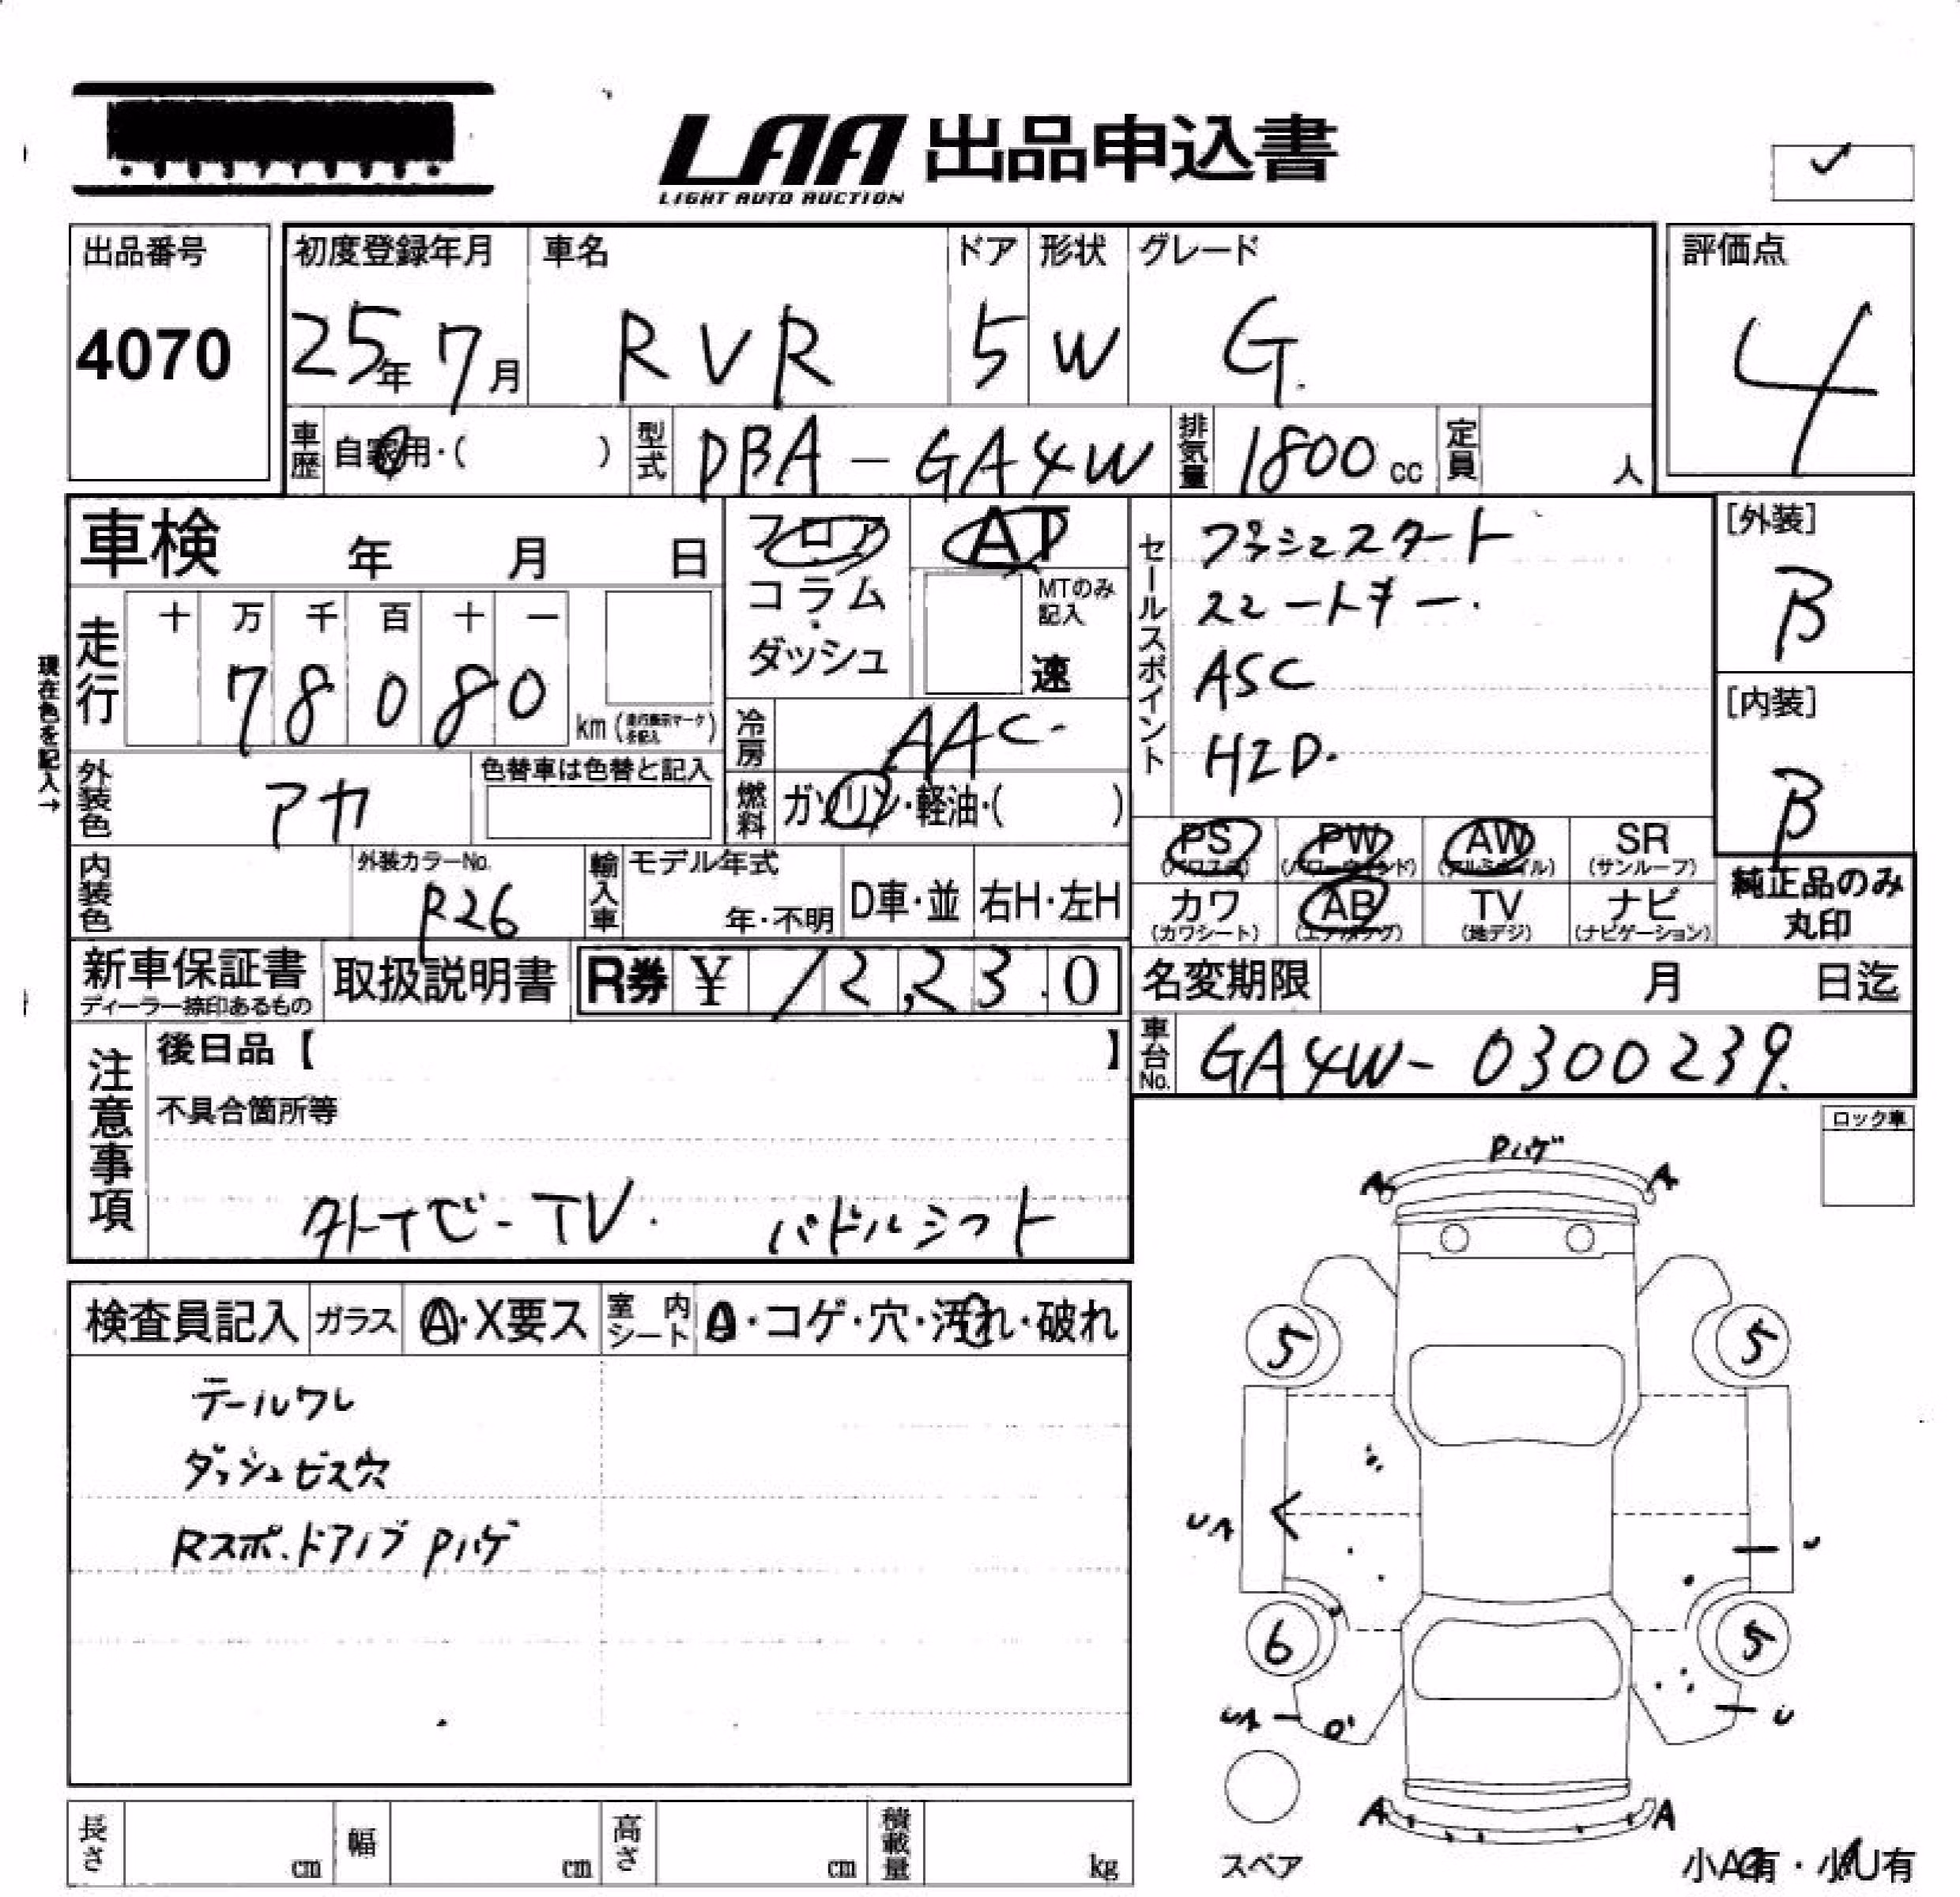 LAA 出品申込書
LIGHT AUTO AUCTION
出品番号
4070
初度登録年月
25年 7月
車名
RVR
ドア
5
形状
W
グレード
G.
評価点
4
車歴 自家用・( )
型式 DBA-GA4W
排気量 1800 cc
定員 人
車検 年 月 日
フロア
コラム
ダッシュ
AT
MTのみ
記入
速
セールスポイント
プッシュスタート
スマートキー.
ASC
HID.
[外装]
B
[内装]
B
現在色を記入→
走行
十 万 千 百 十 一
7 8 0 8 0
km
冷房 AAC-
燃料 ガソリン・軽油・( )
外装色 アカ
色替車は色替と記入
PS PW AW SR
(アルミホイル) (サンルーフ)
カワ AB TV ナビ
(カワシート) (エアバッグ) (地デジ) (ナビゲーション)
純正品のみ
丸印
内装色
外装カラーNo.
P26
輸入車
モデル年式
年・不明
D車・並
右H・左H
新車保証書
ディーラー捺印あるもの
取扱説明書
R券 ¥ 12,23.0
名変期限 月 日迄
車台No. GA4W-0300239.
注意事項
後日品【 】
不具合箇所等
外ナビ-TV. パドルシフト
ロック車
検査員記入
ガラス A・X要ス
室内シート A・コゲ・穴・汚れ・破れ
テールワレ
ダッシュビス穴
Rスポ.ドアノブ Pハゲ
Pハゲ
A A
5 5
UA U
6 5
UA U
A A
スペア
小A有・小U有
長さ cm
幅 cm
高さ cm
積載量 kg